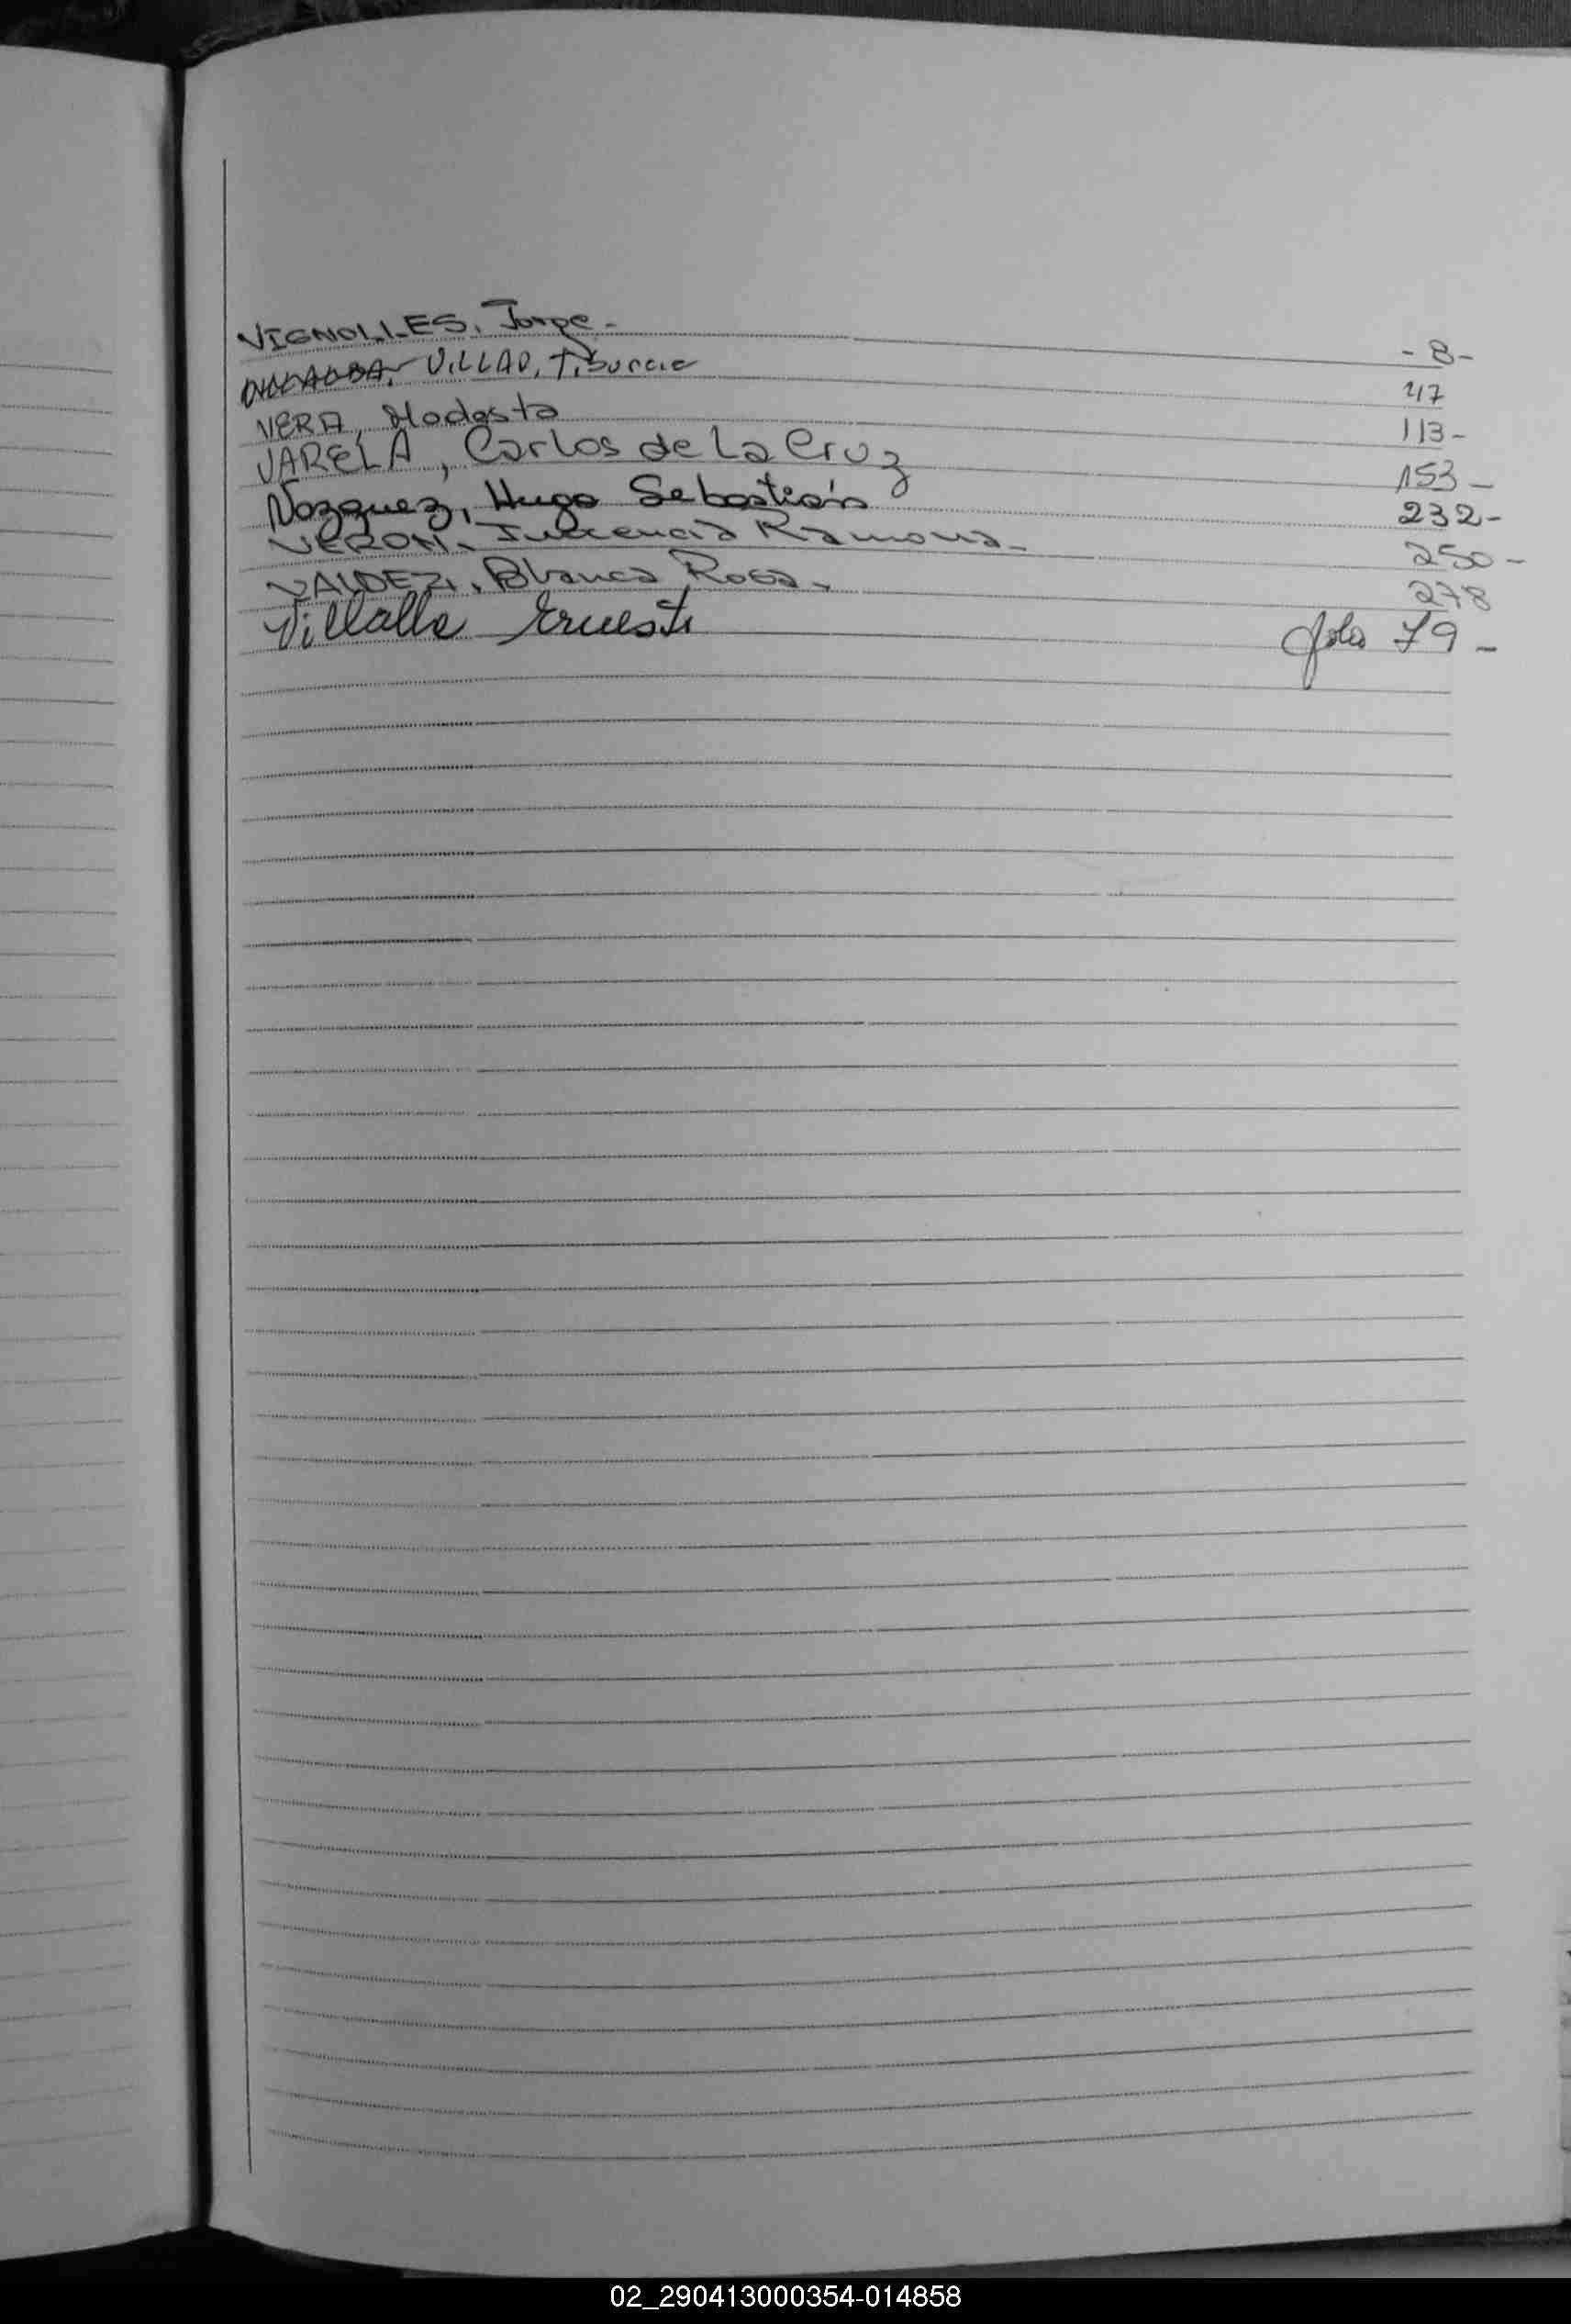 VIGNOLLES, Jorge. - 8 -
VILLALBA, VILLAD, Tiburcio 47
VERA, Modesta 113 -
VARELA, Carlos de La Cruz 153 -
Vazquez, Hugo Sebastián 232 -
VERON, Ramona - 250 -
VALDEZ, Blanca Rosa - 278
Villalba Ernesto folio 79 -
02_290413000354-014858